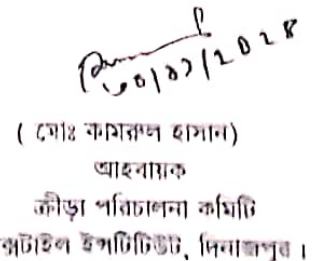 ৩০/১১/২০২৪
( মোঃ কামরুল হাসান)
আহবায়ক
ক্রীড়া পরিচালনা কমিটি
ক্সটাইল ইন্সটিটিউট, দিনাজপুর ।